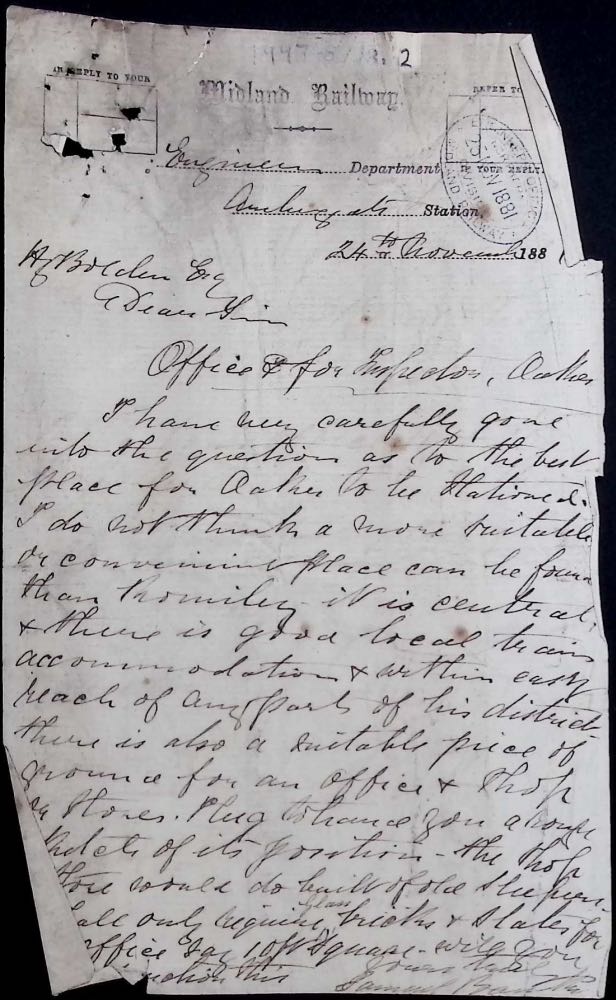 1997-
2
IN REPLY TO YOUR
REFER TO
Midland Railway.
Engineers Department
IN YOUR REPLY
ENGINEERS OFFICE
NOV 1881
MIDLAND RAILWAY
Ambergate Station,
24th November 188
Dear Sir
Office & for Inspector, Oakes
I have very carefully gone
into the question as to the best
place for Oakes to be stationed.
I do not think a more suitable
or convenient place can be found
than Romiley it is central
& there is good local train
accommodation & within easy
reach of any part of his district
there is also a suitable piece of
ground for an office & shop
or stores. I beg to hand you a rough
sketch of its position - the shop
store would do built of old sleepers
only require glass bricks & slates for
office say 10ft square. will you
this
Yours truly
Samuel